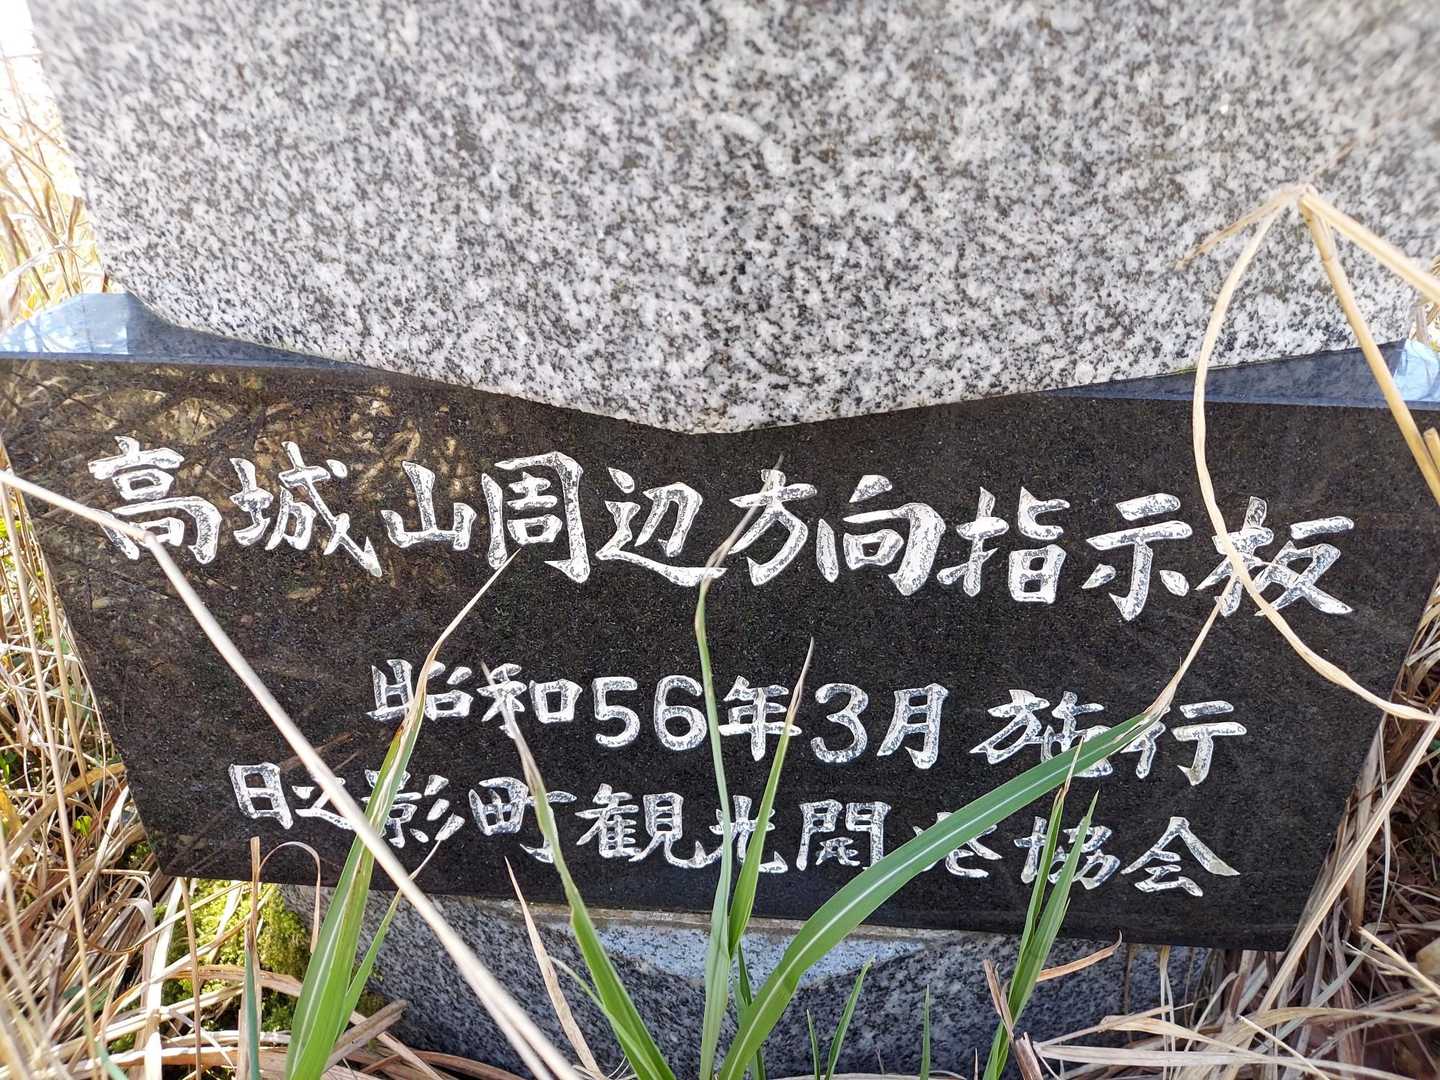 高城山周辺方向指示板
昭和56年3月 施行
日之影町観光開発協会